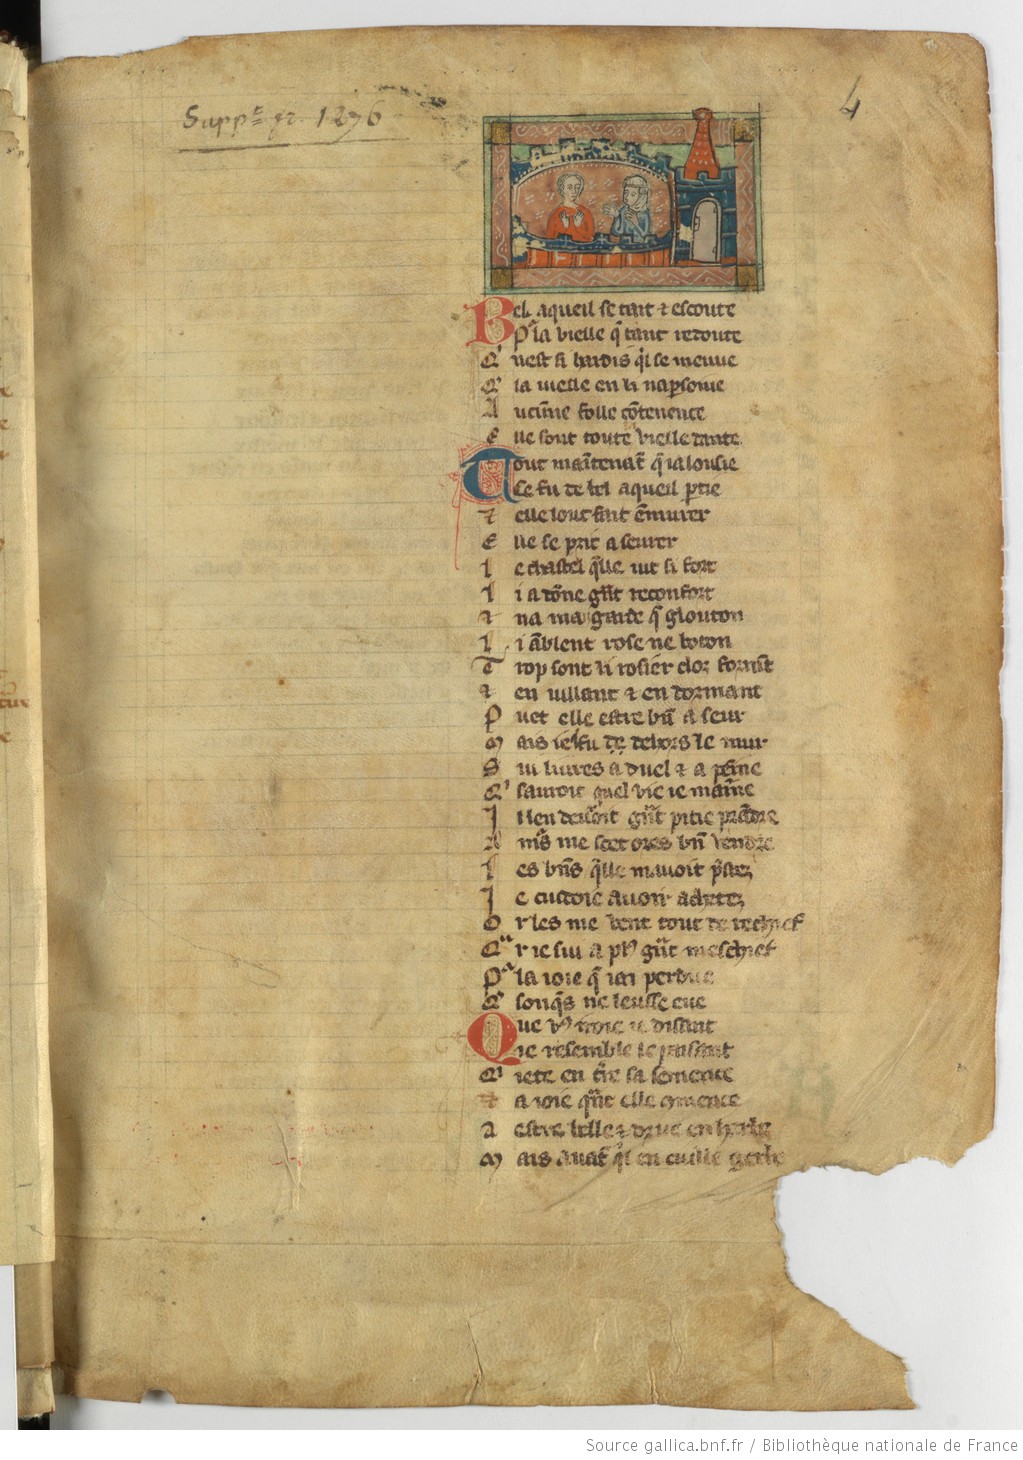 Supp^e fr. 1276
4
Bel aqueil se tait & escoute
Pᵒ la vielle q̄ tant redoute
Q' nest si hardis q̓l se meuue
Q' la vielle en li naꝑsoiue
Aucūne folle cōtenence
Elle sont toute vielle dante
Tout maītenāt q̄ ialousie
Se fu de bel aqueil ꝑtie
& elle lout fait ēmurer
Elle se prīt a seurer
le chastel q̄lle vit si fort
li a dōne gn̄t reconfort
& na mai garde q̄ glouton
li āblent rose ne boton
Trop sont li rosier clos formt
& en uillant & en dormant
Puet elle estre bn̄ a seur
Mais ie fu de dehors le mur
Sui liures a duel & a peine
Q' sauroit quel vie ie maīne
Il en deuroit gn̄t pitie prādre
Am̄s me scet ores bn̄ vendre
les bn̄s q̄lle mauoit p̄stez
Je cuidoie auoir achetez
Or les me vent tout de rechief
Qᵃr ie sui a pl᷒ gn̄t meschief
Pᵒ la ioie q̄ iai perdue
Q' sonq̄s ne leusse eue
Que vo᷒ iroie ie disant
Ie resemble le paisant
Q' iete en tr̄e sa semence
& a ioie qn̄t elle cōmence
A estre belle & drue en herbe
Mais auāt q̓l en cuille gerbe
Source gallica.bnf.fr / Bibliothèque nationale de France